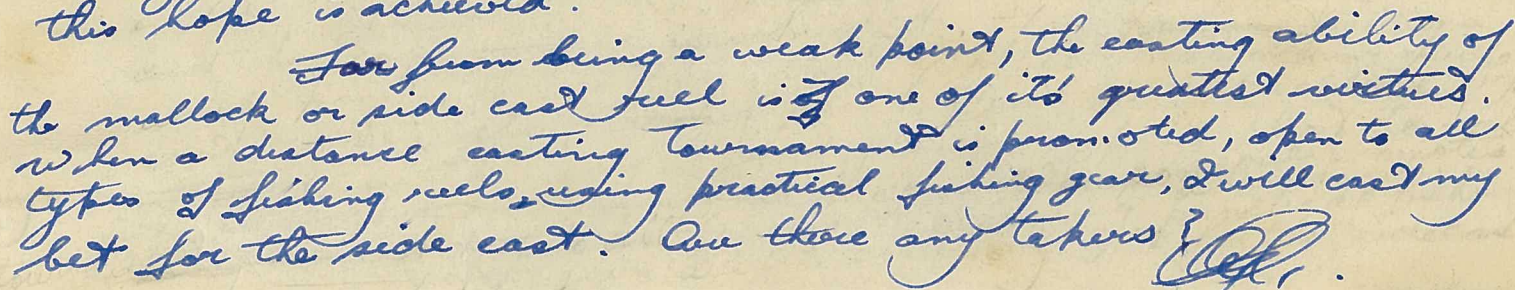 this hope is achieved.
Far from being a weak point, the casting ability of
the mallock or side cast reel is one of it's greatest virtues.
When a distance casting Tournament is promoted, open to all
types of fishing reels, using practical fishing gear, I will cast my
bet for the side cast. Are there any takers?